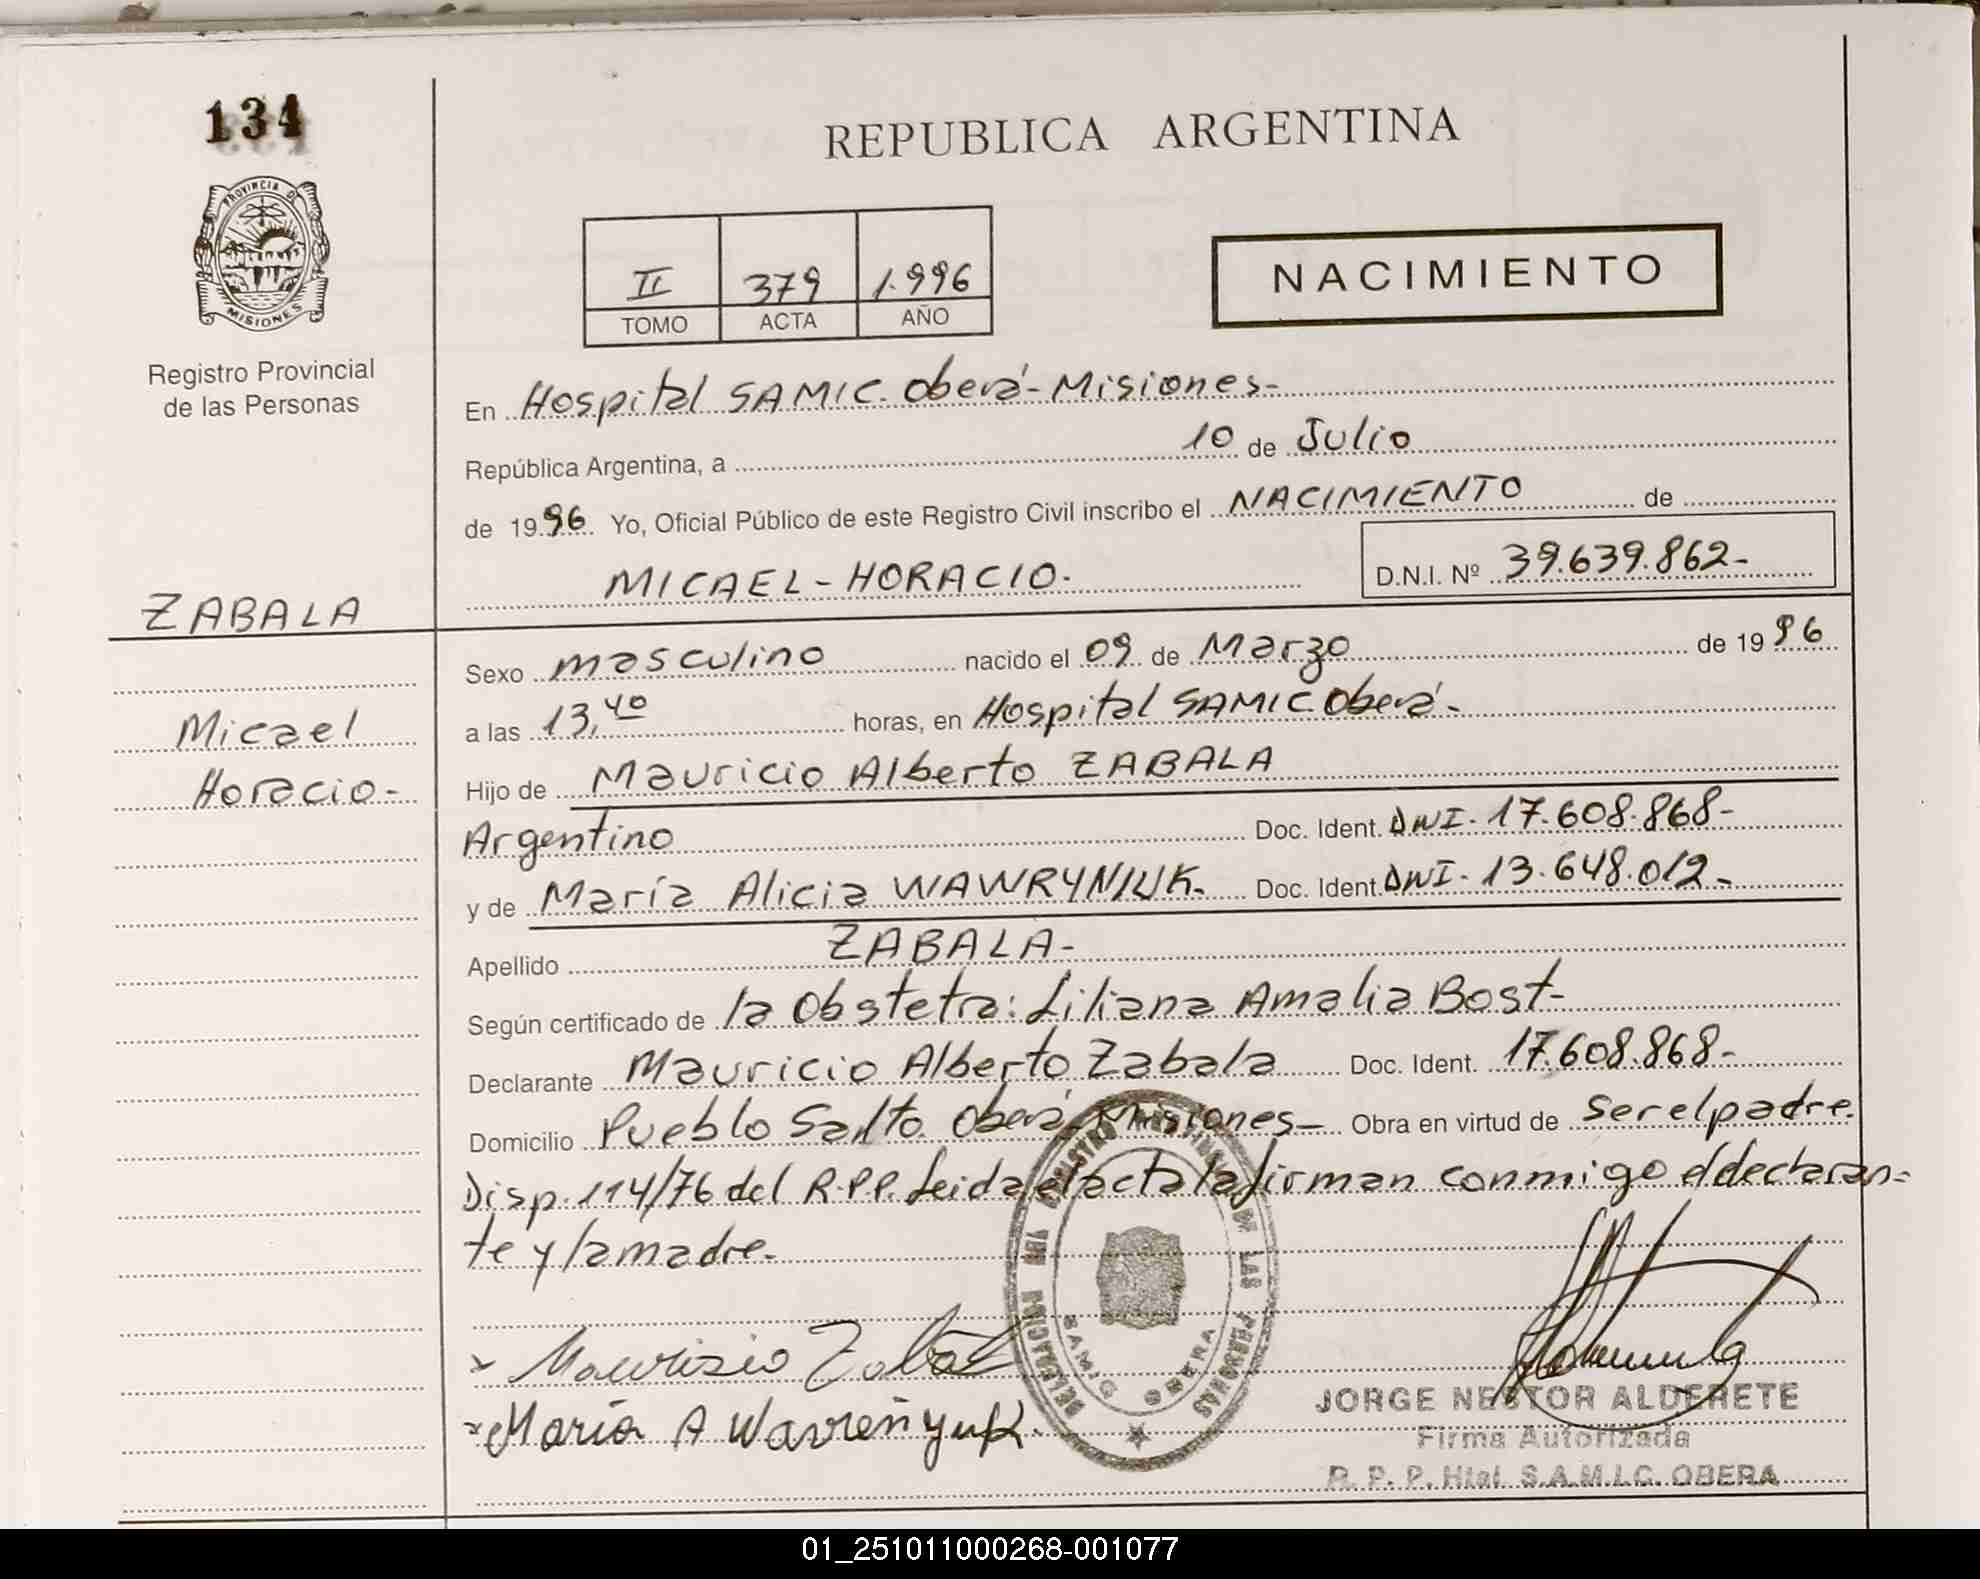 134
PROVINCIA DE
MISIONES
Registro Provincial
de las Personas
REPUBLICA ARGENTINA
II 379 1.996
TOMO ACTA AÑO
NACIMIENTO
En Hospital SAMIC. Oberá - Misiones-
República Argentina, a 10 de Julio
de 19 96. Yo, Oficial Público de este Registro Civil inscribo el NACIMIENTO de
MICAEL - HORACIO. D.N.I. Nº 39.639.862-
ZABALA
Micael
Horacio-
Sexo masculino nacido el 09 de Marzo de 19 96
a las 13,40 horas, en Hospital SAMIC Oberá-
Hijo de Mauricio Alberto ZABALA
Argentino Doc. Ident. DNI. 17.608.868-
y de María Alicia WAWRYNIUK. Doc. Ident. DNI. 13.648.012-
Apellido ZABALA-
Según certificado de la Obstetra: Liliana Amalia Bost-
Declarante Mauricio Alberto Zabala Doc. Ident. 17.608.868-
Domicilio Pueblo Salto. Oberá-Misiones- Obra en virtud de ser el padre.
Disp. 114/76 del R.P.P. Leida el acta la firman conmigo el declaran-
te y la madre-
DE LAS PERSONAS
SAMIC OBERA
Mauricio Zabala
María A Wavreñyuk.
JORGE NESTOR ALDERETE
Firma Autorizada
R. P. P. Htal. S.A.M.I.C. OBERA
01_251011000268-001077